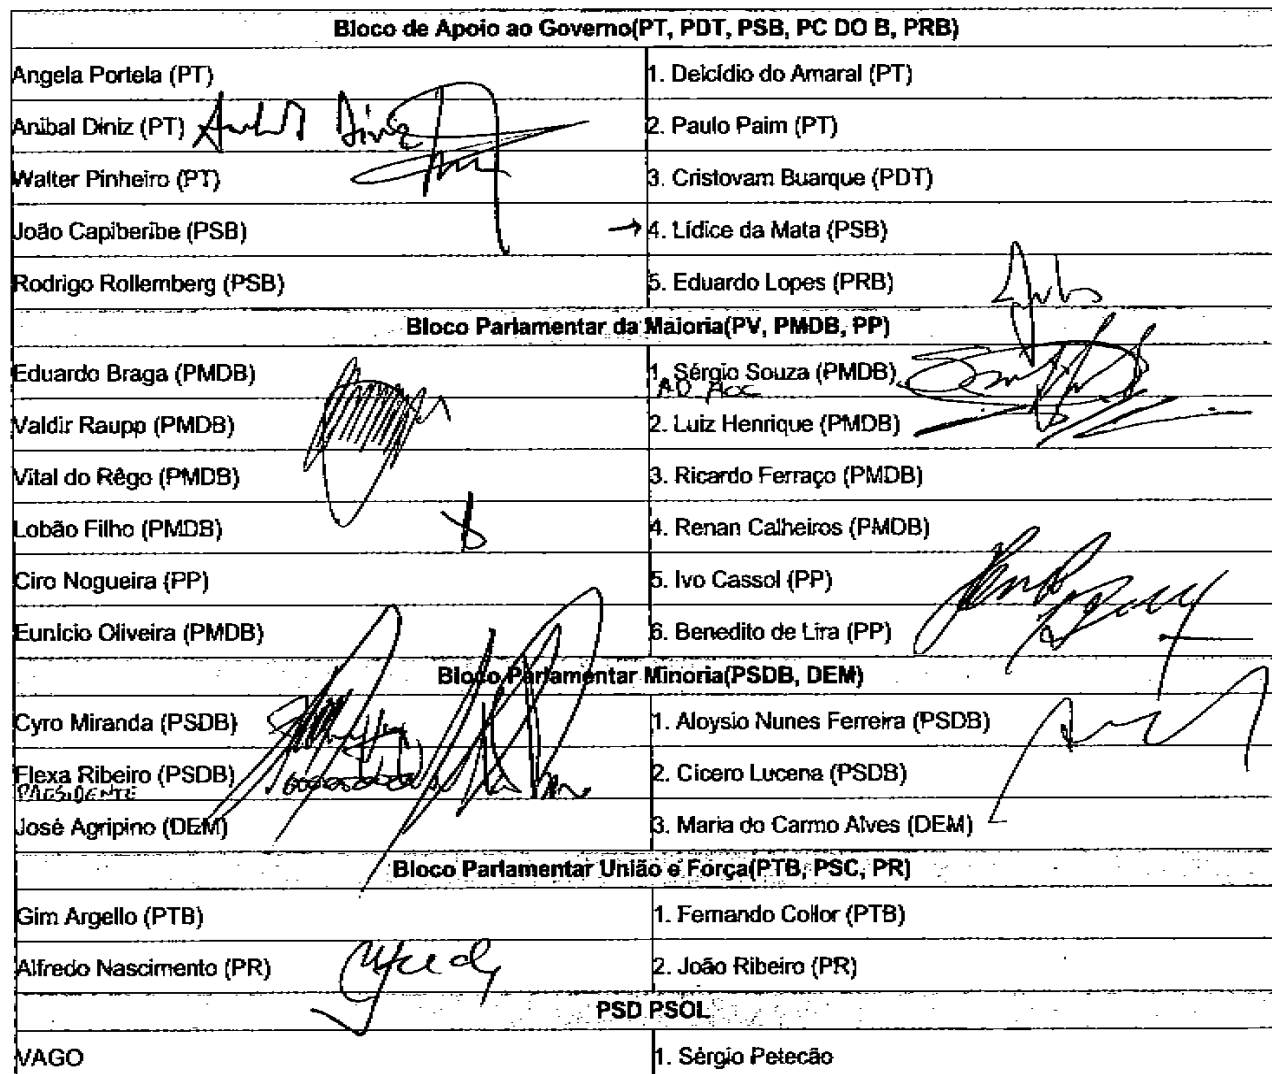 Bloco de Apoio ao Governo(PT, PDT, PSB, PC DO B, PRB)
Angela Portela (PT) 1. Delcídio do Amaral (PT)
Anibal Diniz (PT) Anibal Diniz 2. Paulo Paim (PT)
Walter Pinheiro (PT) 3. Cristovam Buarque (PDT)
João Capiberibe (PSB) → 4. Lídice da Mata (PSB)
Rodrigo Rollemberg (PSB) 5. Eduardo Lopes (PRB)
Bloco Parlamentar da Maioria(PV, PMDB, PP)
Eduardo Braga (PMDB) 1. Sérgio Souza (PMDB)
AD HOC
Valdir Raupp (PMDB) 2. Luiz Henrique (PMDB)
Vital do Rêgo (PMDB) 3. Ricardo Ferraço (PMDB)
Lobão Filho (PMDB) 4. Renan Calheiros (PMDB)
Ciro Nogueira (PP) 5. Ivo Cassol (PP)
Eunício Oliveira (PMDB) 6. Benedito de Lira (PP)
Bloco Parlamentar Minoria(PSDB, DEM)
Cyro Miranda (PSDB) 1. Aloysio Nunes Ferreira (PSDB)
Flexa Ribeiro (PSDB) 2. Cícero Lucena (PSDB)
PRESIDENTE
José Agripino (DEM) 3. Maria do Carmo Alves (DEM)
Bloco Parlamentar União e Força(PTB, PSC, PR)
Gim Argello (PTB) 1. Fernando Collor (PTB)
Alfredo Nascimento (PR) 2. João Ribeiro (PR)
PSD PSOL
VAGO 1. Sérgio Petecão